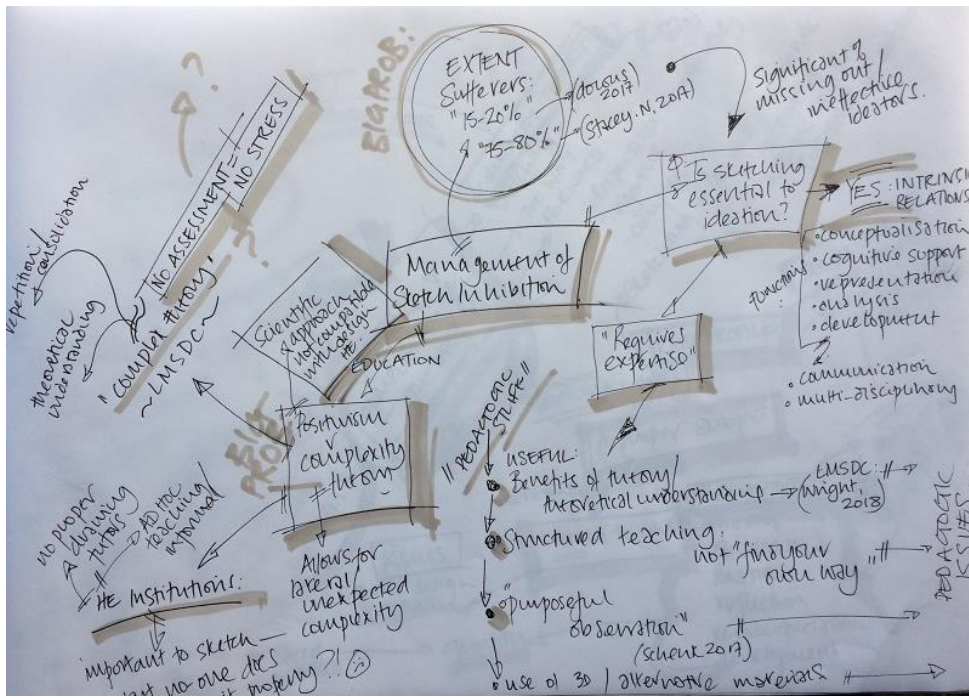 BIG PROB:
EXTENT
Sufferers:
"15-20%"
"75-80%"
2017
(Stacey. N. 2017)
Significant of
missing out/
ineffective
ideators.
Is sketching
essential to
ideation?
YES: INTRINSIC
RELATIONS
FUNCTIONS:
• conceptualisation
• cognitive support
• representation
• analysis
• development
• communication
• multi-disciplining
Management of
Sketch Inhibition
"Requires
expertise"
?
NO ASSESSMENT =
NO STRESS
?
repetition/
consolidation
theoretical
understanding
"complex theory"
~LMSDC~
Scientific
approach
not compatible
with design
HE.
EDUCATION
BIG
PROB
Positivism
v
complexity
theory
Allows for
lateral/
unexpected
complexity
no proper
drawing
tutors
AD HOC
teaching
informal
HE Institutions:
important to sketch —
but no one does
it properly?!
"PEDAGOGIC
STUFF"
USEFUL:
Benefits of theory/
theoretical understanding
LMSDC:
(Wright,
2018)
• Structured teaching.
not "find your
own way"
• "purposeful
observation"
(Schenk 2017)
• use of 3D / alternative materials
PEDAGOGIC
ISSUES